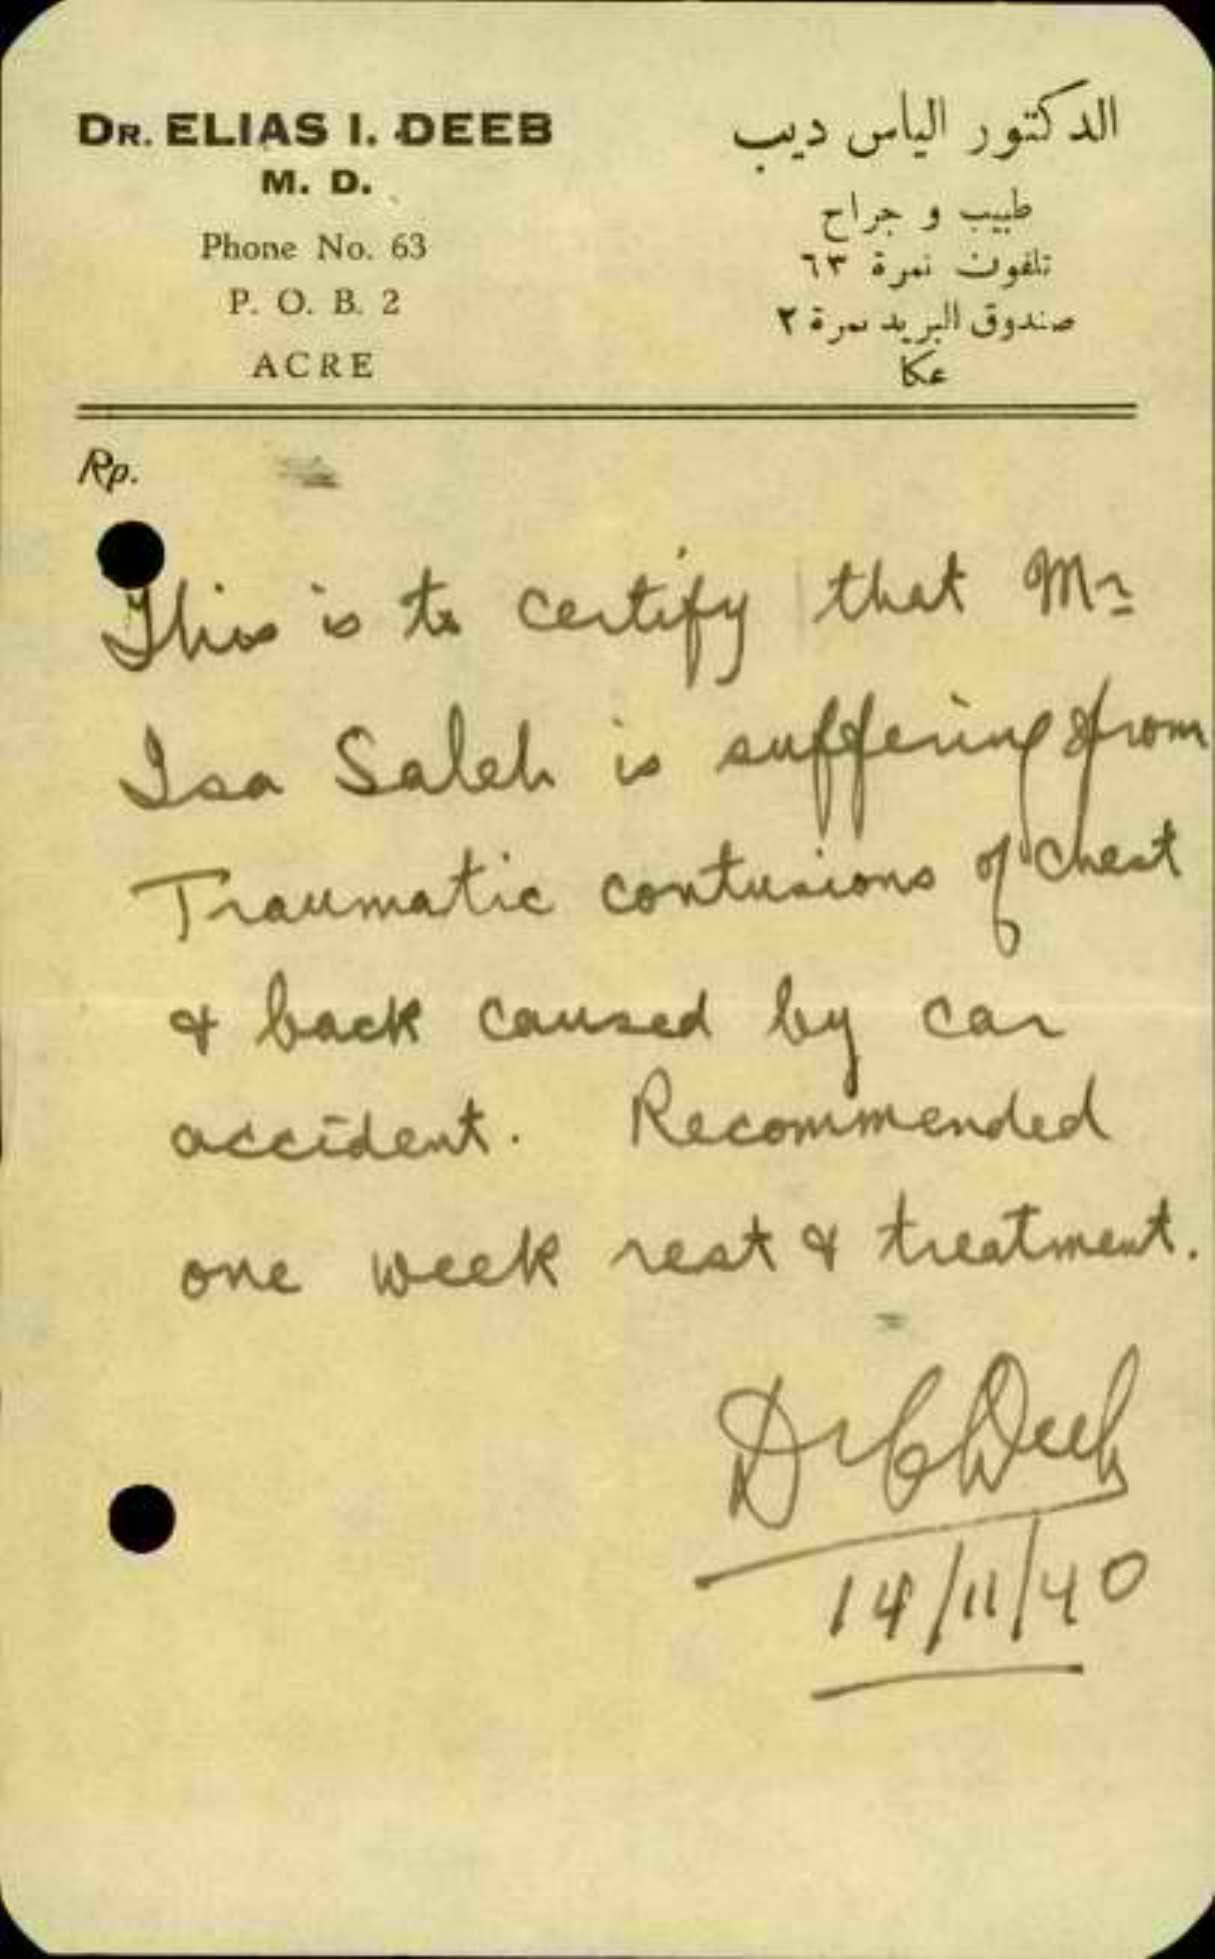 DR. ELIAS I. DEEB
M. D.
Phone No. 63
P. O. B. 2
ACRE
الدكتور الياس ديب
طبيب و جراح
تلفون نمرة ٦٣
صندوق البريد نمرة ٢
عكا
Rp.
This is to certify that Mr
Isa Saleh is suffering from
Traumatic contusions of chest
& back caused by car
accident. Recommended
one week rest & treatment.
Dr E Deeb
14/11/40